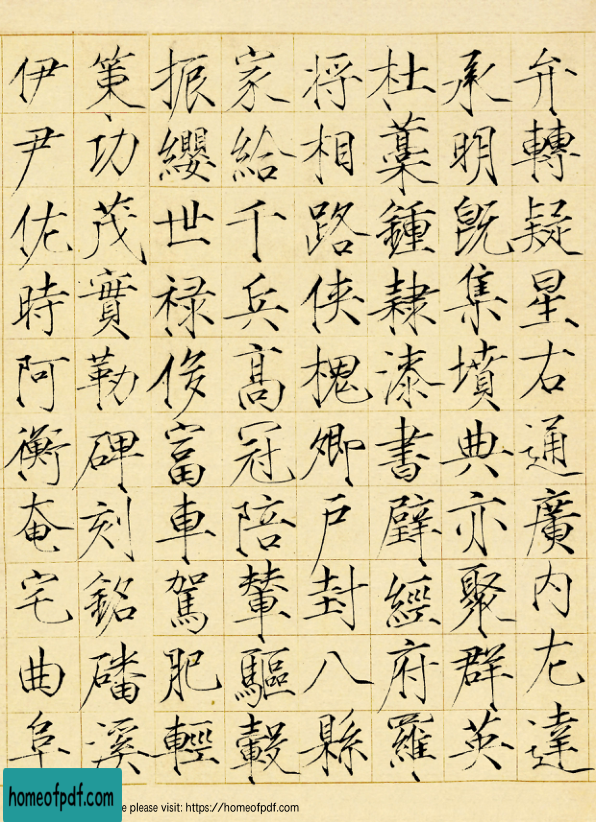 弁轉疑星右通廣内左達
承明既集墳典亦聚群英
杜藁鍾隸漆書壁經府羅
将相路俠槐卿戶封八縣
家給千兵髙冠陪輦驅轂
振纓世禄侈富車駕肥輕
策功茂實勒碑刻銘磻溪
伊尹佐時阿衡奄宅曲阜
homeofpdf.com
please visit: https://homeofpdf.com